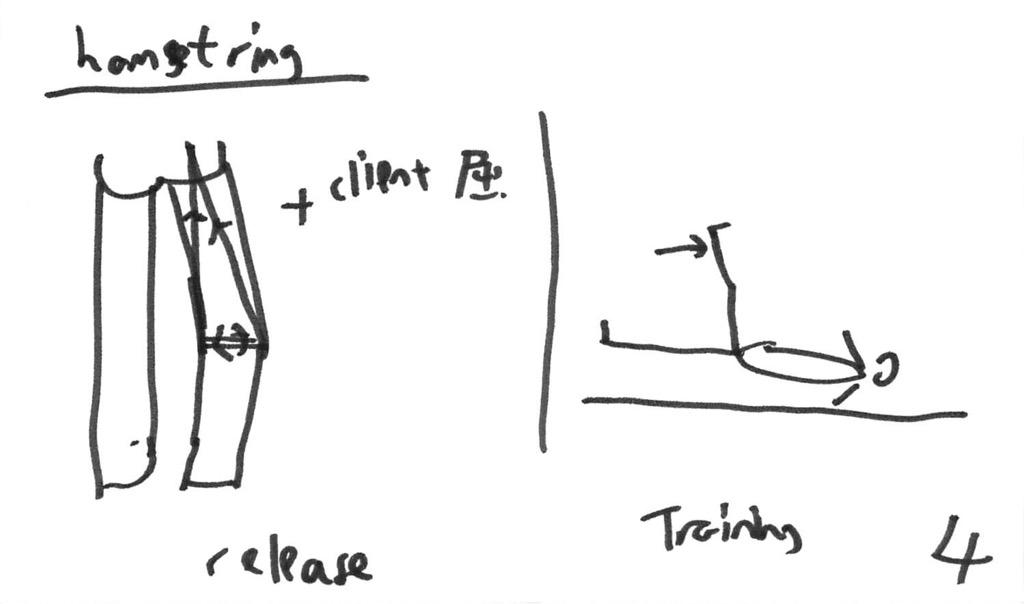 hamstring
+ client
release
Training
4